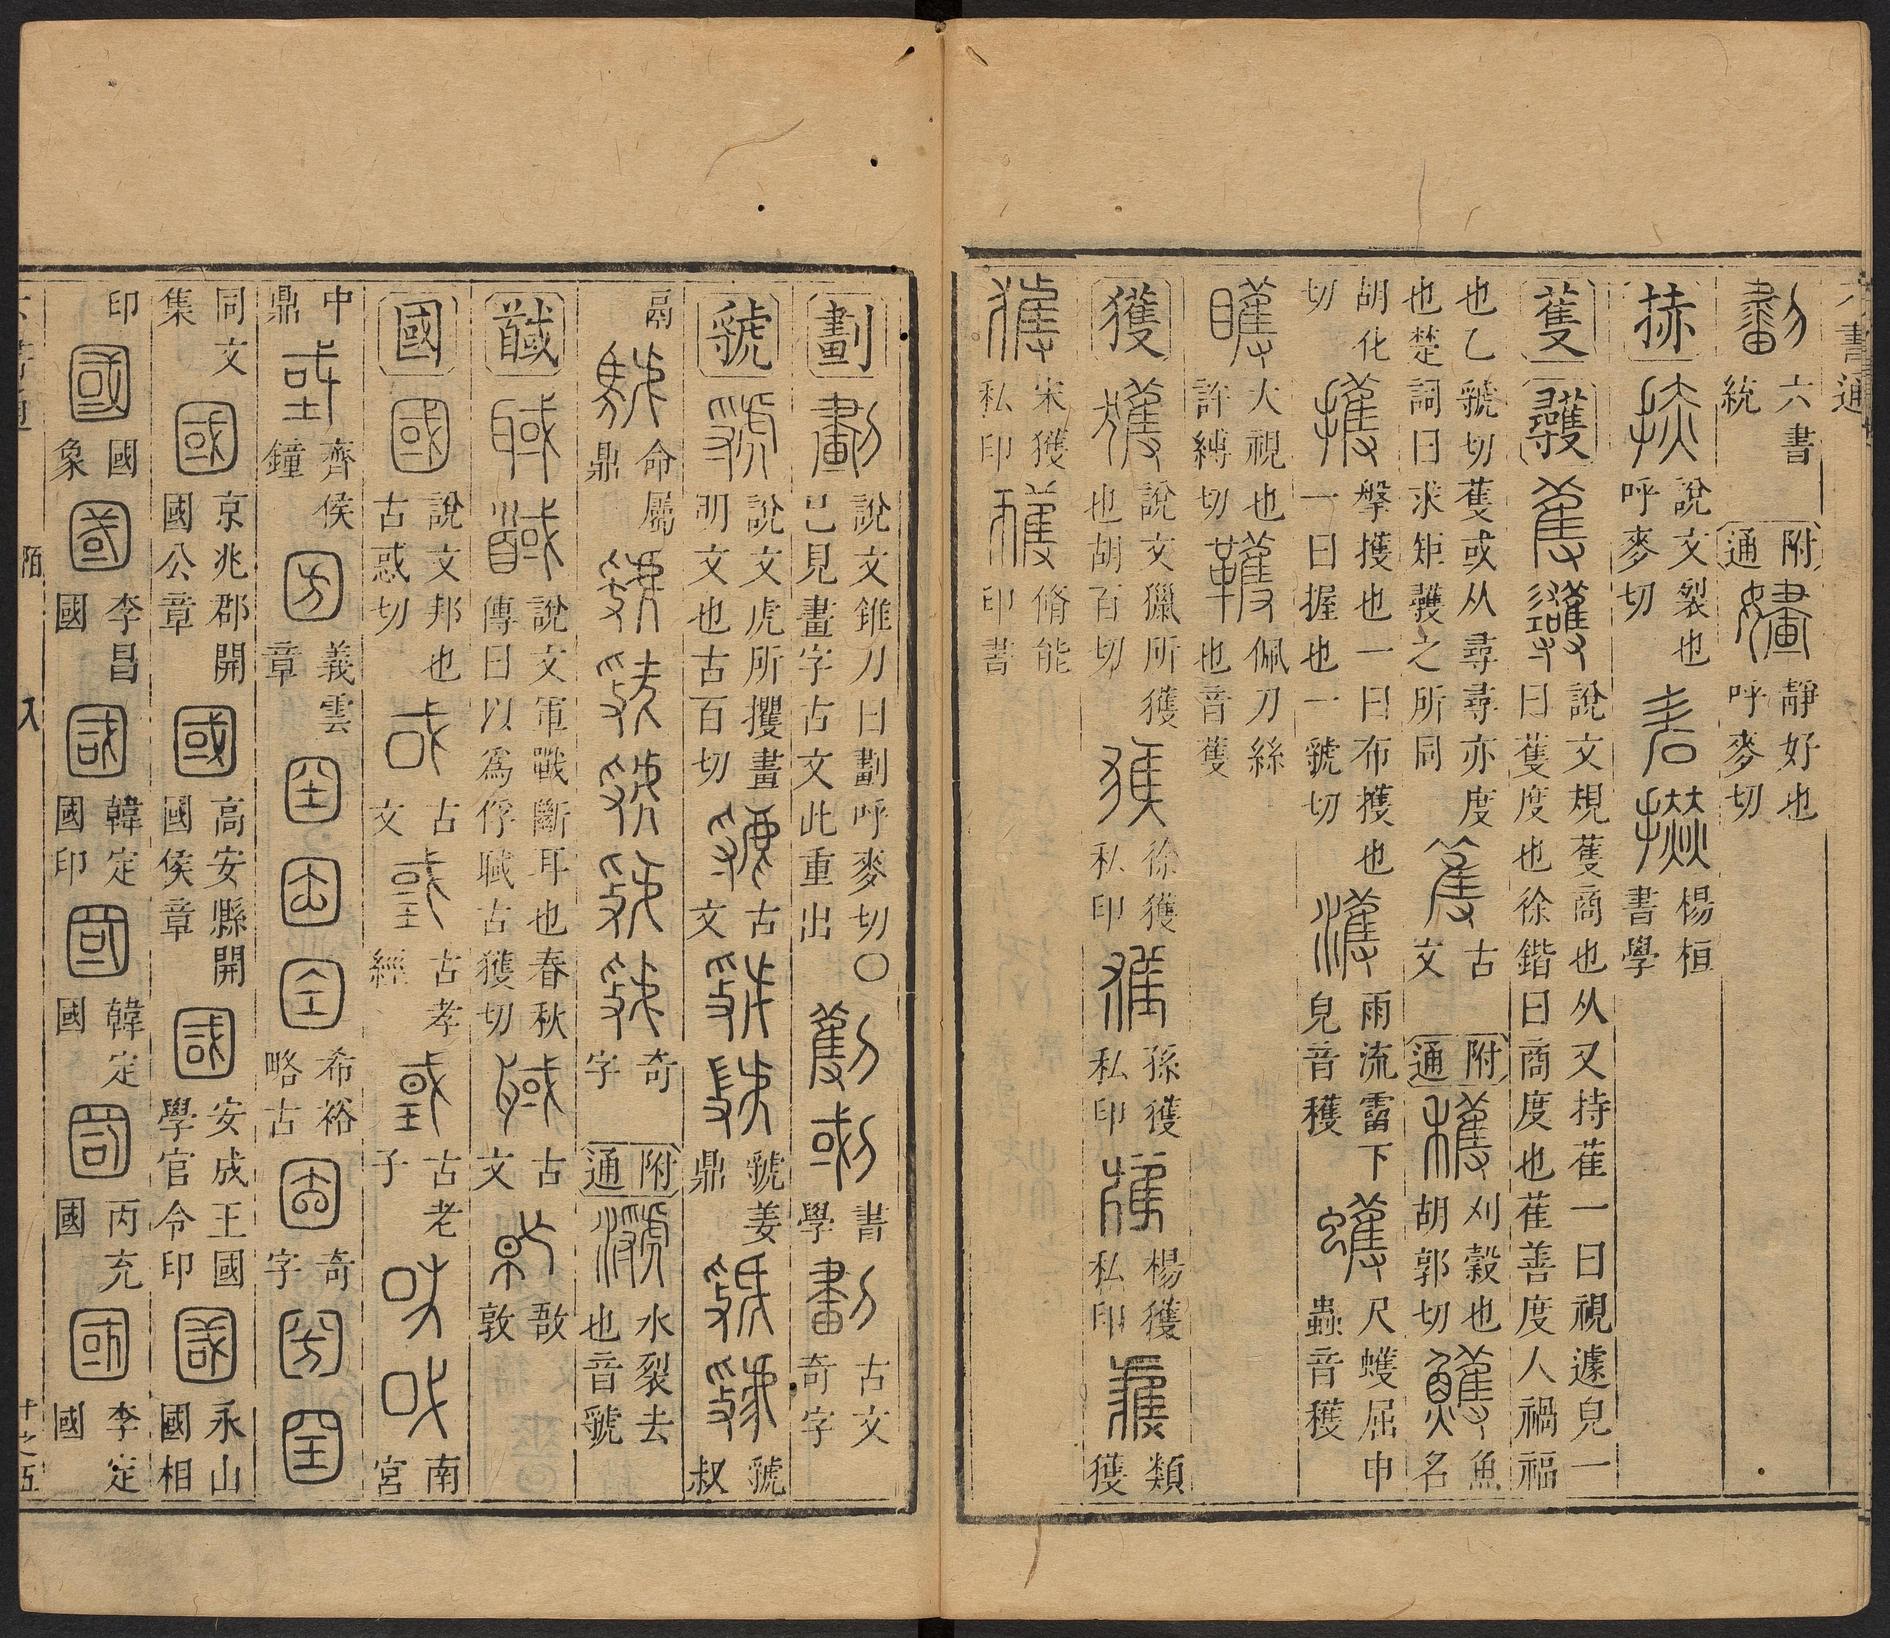 六書通
六書統
附通
靜好也呼麥切
赫
說文裂也呼麥切
楊桓書學
蒦
彠
說文規蒦商也从又持萑一曰視遽皃一曰蒦度也徐鍇曰商度也萑善度人禍福也乙虢切蒦或从尋尋亦度也楚詞曰求矩彠之所同
古文
附通
刈穀也胡郭切
魚名
胡化切
擊擭也一曰布擭也一曰握也一虢切
雨流霤下皃音穫
尺蠖屈申蟲音穫
大視也許縛切
佩刀絲也音蒦
獲
說文獵所獲也胡百切
徐獲私印
孫獲私印
楊獲私印
類獲
宋獲私印
脩能印書
劃
說文錐刀曰劃呼麥切〇已見畫字古文此重出
書學
古文奇字
虢
說文虎所攫畫明文也古百切
古文
虢姜鼎
虢叔鬲
命屬鼎
奇字
附通
水裂去也音虢
馘
說文軍戰斷耳也春秋傳曰以爲俘聝古獲切
古文
敔敦
國
說文邦也古惑切
古文
古孝經
古老子
南宮中鼎
齊侯鐘
義雲章
希裕略古
奇字
同文集
京兆郡開國公章
高安縣開國侯章
安成王國學官令印
永山國相印
國象
李昌國
韓定國印
韓定國
丙充國
李定國
陌
入
十之五